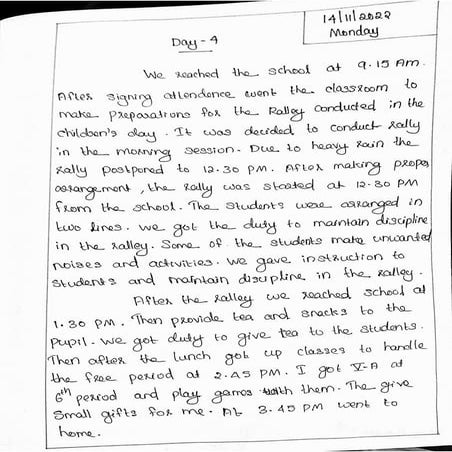 14/11/2022
Monday
Day - 4
We reached the school at 9.15 Am.
After signing attendence went the classroom to
make preparations for the Ralley conducted in the
children's day. It was decided to conduct rally
in the morning session. Due to heavy rain the
rally postponed to 12.30 PM. After making proper
arrangement, the rally was started at 12.30 PM
from the school. The students were arranged in
two lines. we got the duty to maintain discipline
in the ralley. Some of the students make unwanted
noises and activities. We gave instruction to
students and maintain discipline in the ralley.
After the ralley we reached school at
1.30 PM. Then provide tea and snacks to the
pupil. We got duty to give tea to the students.
Then after the lunch got up classes to handle
the free period at 2.45 PM. I got V-A at
6th period and play games with them. The give
small gifts for me. At 3.45 PM went to
home.